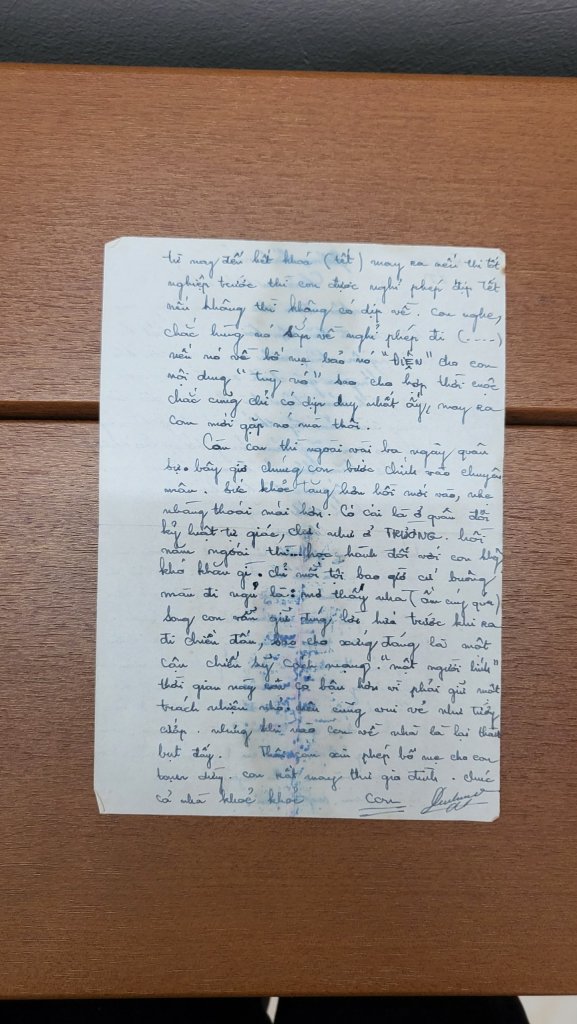 từ nay đến hết khoá (tết) may ra nếu thi tốt
nghiệp trước thì con được nghỉ phép dịp Tết
nếu không thì không có dịp về. Con nghe,
chắc hùng nó sắp về nghỉ phép đi (....)
nếu nó về bố mẹ bảo nó "ĐIỆN" cho con
nội dung "tuỳ nó" sao cho hợp thời cuộc
chắc cũng chỉ có dịp duy nhất ấy, may ra
con mới gặp nó mà thôi.
Còn con thì ngoài vài ba ngày quân
sự. bây giờ chúng con bước chính vào chuyên
môn. Sức khoẻ tăng hơn hồi mới vào, nhẹ
nhàng thoải mái hơn. Có cái là ở quân đội
kỷ luật tự giác, chứ như ở TRƯỜNG. hồi
năm ngoái thì học hành đối với con
khó khăn gì. chỉ mỗi tội bao giờ cứ buông
màn đi ngủ là mơ thấy nhà
Song con vẫn giữ đúng lời hứa trước khi ra
đi chiến đấu, sao cho xứng đáng là một
cán chiến sỹ cách mạng. "một người lính"
thời gian này con có bận hơn vì phải giữ một
trách nhiệm nhỏ. nên cũng vui vẻ như
nhưng khi nào con về nhà là lại
bụt đấy. Thôi xin phép bố mẹ cho con
dừng. con rất mong thư gia đình. chúc
cả nhà khoẻ khoẻ con